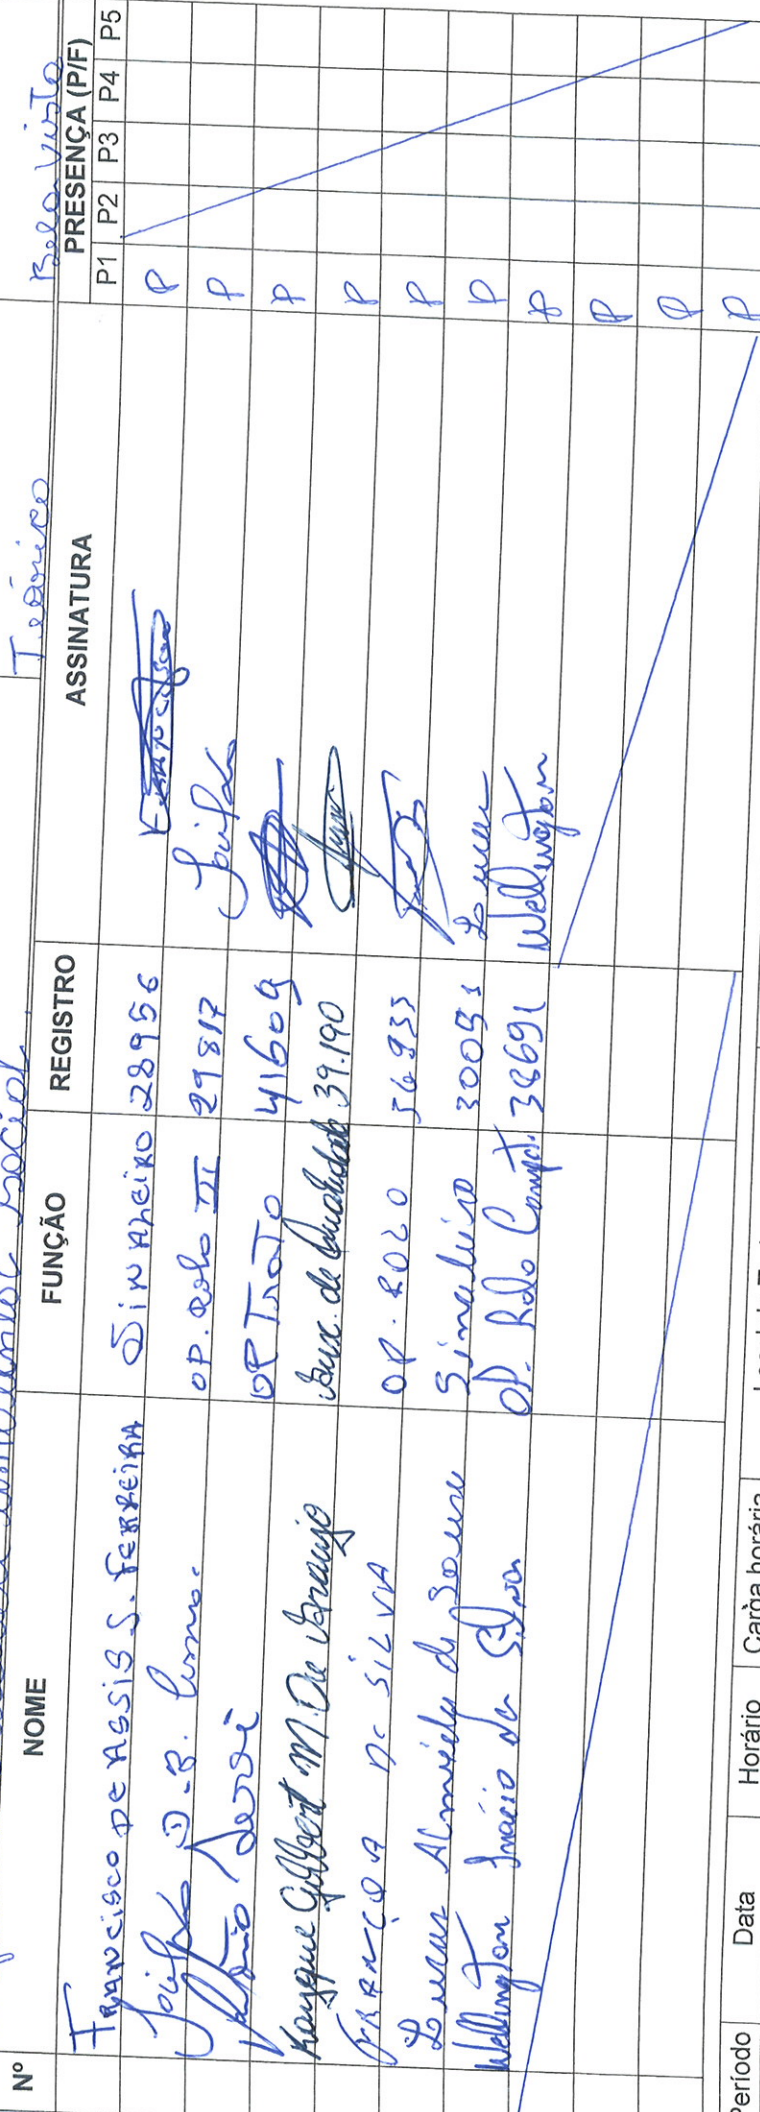 Social
Teórico
Bela Vista
Nº NOME FUNÇÃO REGISTRO ASSINATURA PRESENÇA (P/F)
P1 P2 P3 P4 P5
FRANCISCO DE ASSIS S. FERREIRA SINALEIRO 28956 P
OP. Rolo III 29817 P
OP TRATO 41609 P
Kayque Gilbert M. De Araujo Aux. de Qualidade 39.190 P
FRANÇOA DE SILVA OP. ROLO P
Lucas Almeida de Souza Sinaleiro 30091 Lucas P
Wellington Inácio da Silva OP. Rolo Compt. 38691 Wellington P
P
P
P
Período Data Horário Carga horária